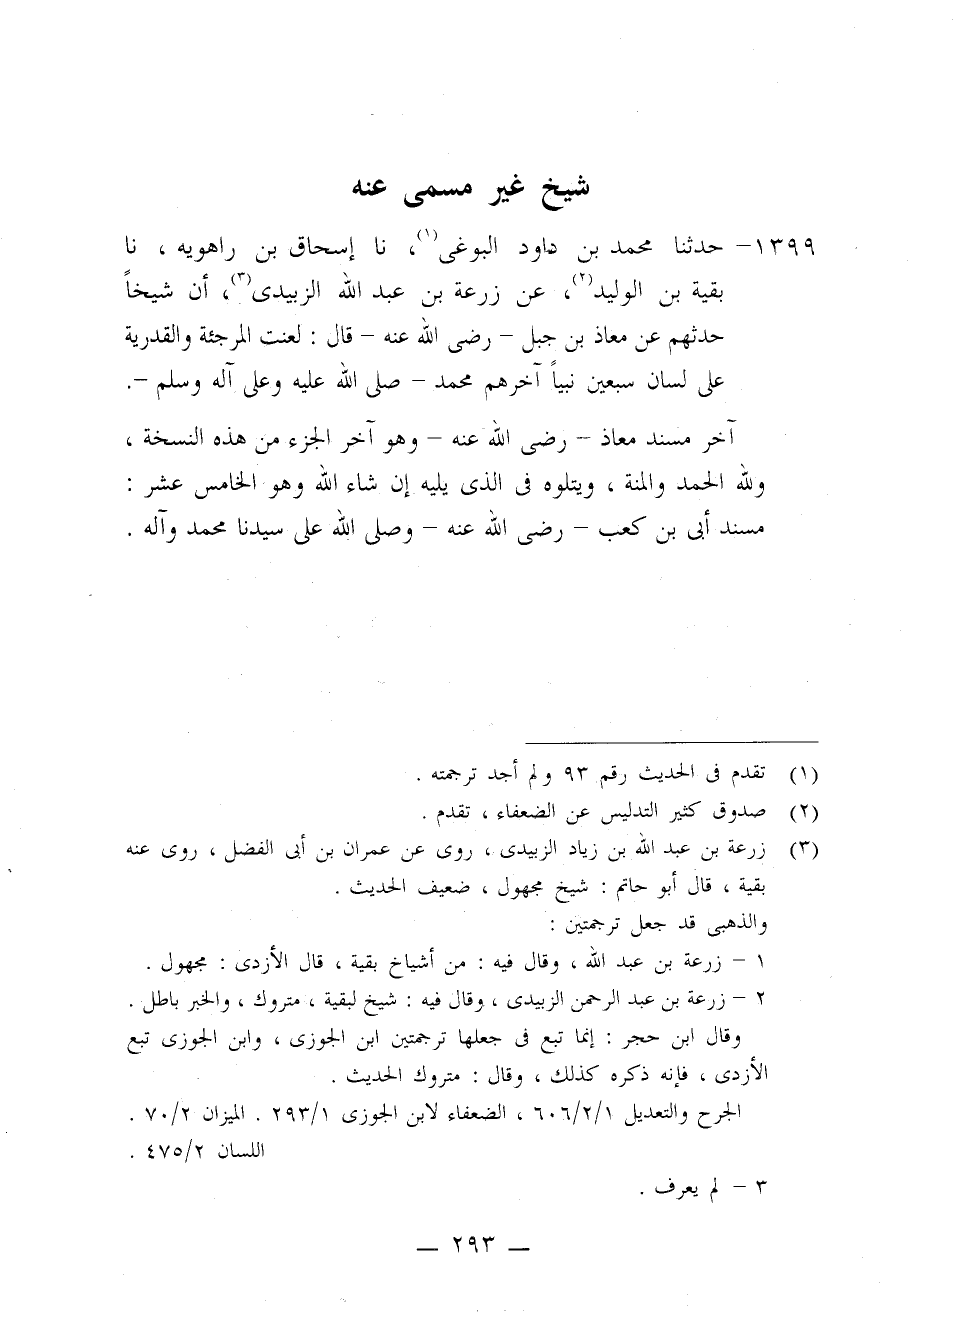 شيخ غير مسمى عنه
١٣٩٩- حدثنا محمد بن داود البوغى(١)، نا إسحاق بن راهويه ، نا
بقية بن الوليد(٢)، عن زرعة بن عبد الله الزبيدى(٣)، أن شيخاً
حدثهم عن معاذ بن جبل - رضى الله عنه - قال : لعنت المرجئة والقدرية
على لسان سبعين نبياً آخرهم محمد - صلى الله عليه وعلى آله وسلم -.
آخر مسند معاذ - رضى الله عنه - وهو آخر الجزء من هذه النسخة ،
ولله الحمد والمنة ، ويتلوه فى الذى يليه إن شاء الله وهو الخامس عشر :
مسند أبى بن كعب - رضى الله عنه - وصلى الله على سيدنا محمد وآله .
(١) تقدم فى الحديث رقم ٩٣ ولم أجد ترجمته .
(٢) صدوق كثير التدليس عن الضعفاء ، تقدم .
(٣) زرعة بن عبد الله بن زياد الزبيدى ، روى عن عمران بن أبى الفضل ، روى عنه
بقية ، قال أبو حاتم : شيخ مجهول ، ضعيف الحديث .
والذهبى قد جعل ترجمتين :
١ - زرعة بن عبد الله ، وقال فيه : من أشياخ بقية ، قال الأزدى : مجهول .
٢ - زرعة بن عبد الرحمن الزبيدى ، وقال فيه : شيخ لبقية ، متروك ، والخبر باطل .
وقال ابن حجر : إنما تبع فى جعلها ترجمتين ابن الجوزى ، وابن الجوزى تبع
الأزدى ، فإنه ذكره كذلك ، وقال : متروك الحديث .
الجرح والتعديل ٦٠٦/٢/١ ، الضعفاء لابن الجوزى ٢٩٣/١ . الميزان ٧٠/٢ .
اللسان ٤٧٥/٢ .
٣ - لم يعرف .
— ٢٩٣ —